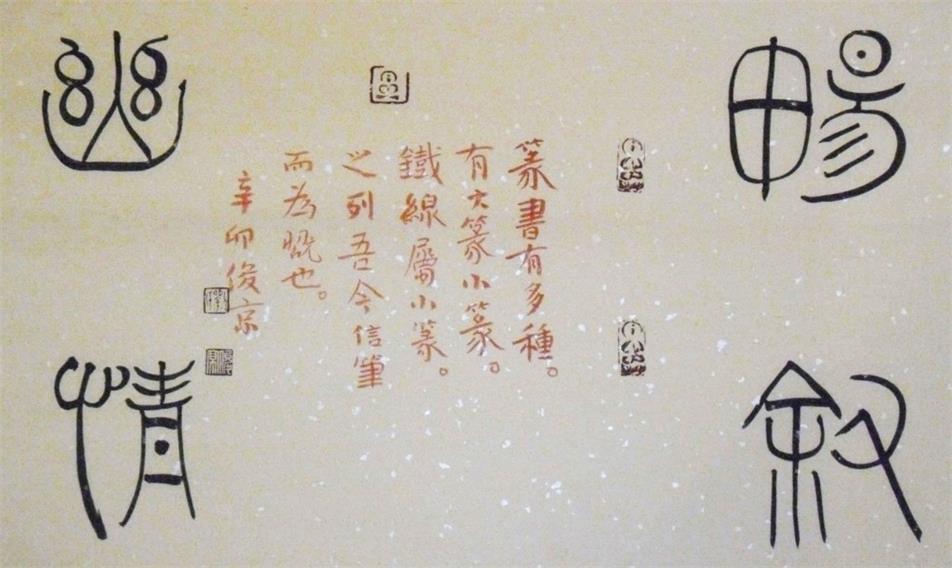 暢敘
篆書有多種。
有大篆小篆。
鐵線屬小篆。
之列吾今信筆
而為嘅也。
辛卯俊京
幽情